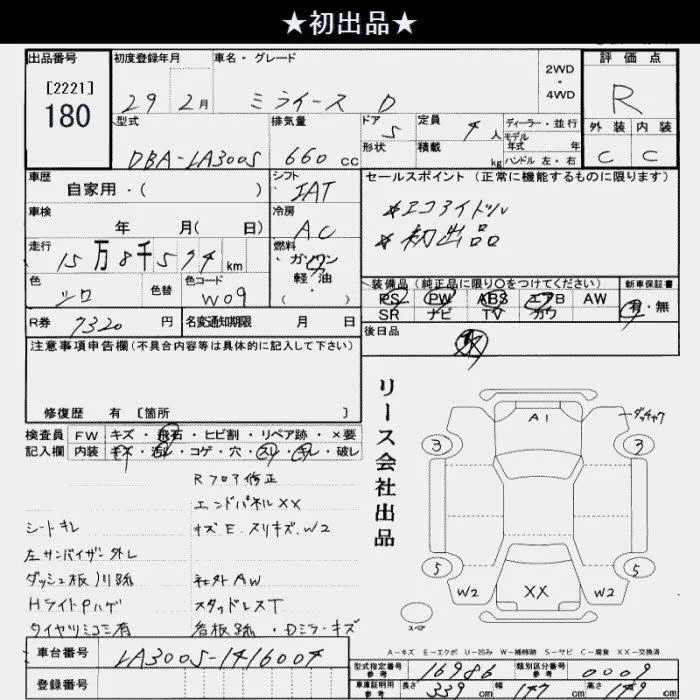 ★初出品★
出品番号 初度登録年月 車名・グレード 2WD・4WD 評価点
[2221]
180
29 2月 ミライース D R
型式 排気量 ドア 5 定員 4人 ディーラー・並行 外装 内装
形状 積載 kg モデル年式 年 C C
DBA-LA300S 660cc ハンドル 左・右
車歴 シフト セールスポイント (正常に機能するものに限ります)
自家用・( ) IAT
車検 冷房 *エコアイドル
年 月( 日) AC *初出品
走行 燃料
15万8千574km ガソリン
軽・油
( ・ )
装備品 (純正品に限り○をつけてください) 新車保証書
色 色替 色コード PS PW ABS エアB AW 有・無
シロ W09 SR ナビ TV カワ
R券 7320円 名変通知期限 月 日 後日品
注意事項申告欄(不具合内容等は具体的に記入して下さい)
修復歴 有 [箇所 ]
リース会社出品
検査員 FW キズ・飛石・ヒビ割・リペア跡・×要
記入欄 内装 キズ・汚レ・コゲ・穴・スレ・キレ・破レ
Rフロア修正
エンドパネルXX
シートキレ キズE.スリキズ.W2
左サンバイザー外レ
ダッシュ板ノリ跡 社外AW
HライトPハゲ スタッドレスT
タイヤツミコミ有 看板跡・Dミラーキズ
A1
3 3
5 5
W2 XX W2
スペア
A-キズ E-エクボ U-凹み W-補修跡 S-サビ C-腐食 XX-交換済
車台番号 LA300S-1416004
登録番号
型式指定番号 参考 16986 類別区分番号 参考 0009
車庫証明用 参考 長さ 339cm 幅 147cm 高さ 149cm